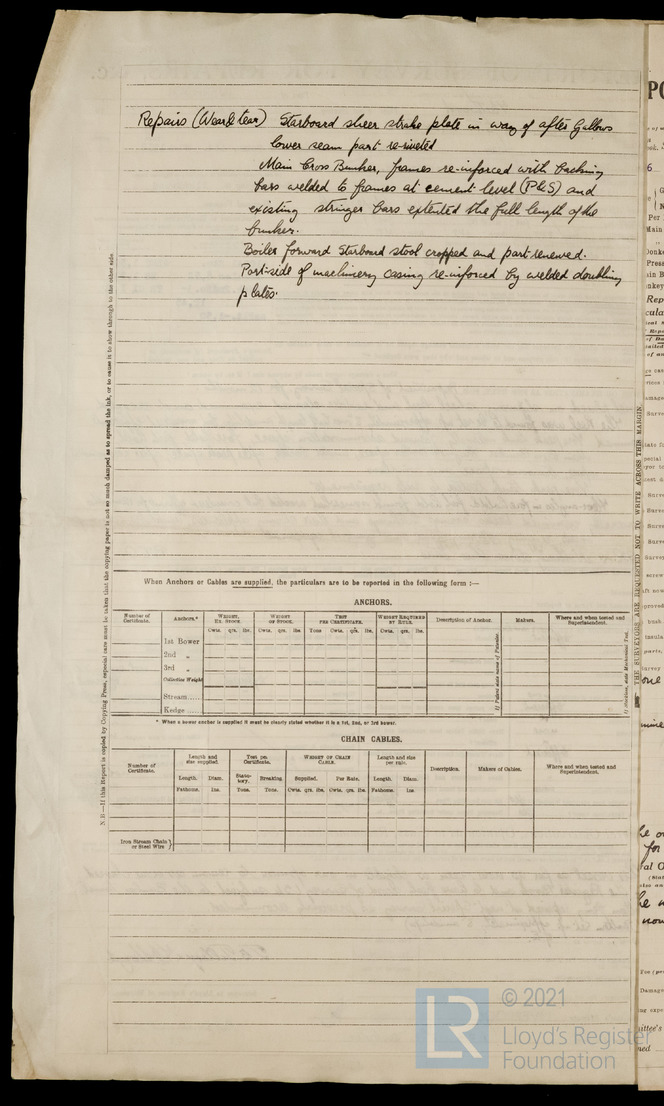 Repairs (Wear & tear) Starboard sheer strake plate in way of after Gallows
lower seam part re-riveted
Main Cross Bunker, frames re-inforced with backing
bars welded to frames at cement level (P&S) and
existing stringer bars extented the full length of the
bunker.
Boiler forward Starboard stool cropped and part renewed.
Port side of machinery casing re-inforced by welded doubling
plates.
N.B.—If this Report is copied by Copying Press, especial care must be taken that the copying paper is not so much damped as to spread the ink, or to cause it to show through to the other side.
THE SURVEYORS ARE REQUESTED NOT TO WRITE ACROSS THIS MARGIN.
When Anchors or Cables are supplied, the particulars are to be reported in the following form :—
ANCHORS.
Number of Certificate. Anchors.* Weight, Ex. Stock Weight of Stock. Test per Certificate. Weight Required by Rule. Description of Anchor. Makers. Where and when tested and Superintendent.
Cwts. qrs. lbs. Cwts. qrs. lbs. Tons Cwts. qrs. lbs. Cwts. qrs. lbs.
1st Bower
2nd „
3rd „
Collective Weight
Stream
Kedge
If Patent state name of Patentee.
* When a bower anchor is supplied it must be clearly stated whether it is a 1st, 2nd, or 3rd bower.
CHAIN CABLES.
Number of Certificate. Length and size supplied. Test per Certificate. Weight of Chain Cable. Length and size per rule. Description. Makers of Cables. Where and when tested and Superintendent.
Length. Diam. Statutory. Breaking. Supplied. Per Rule. Length. Diam.
Fathoms. Ins. Tons. Tons. Cwts. qrs. lbs. Cwts. qrs. lbs. Fathoms. Ins.
Iron Stream Chain or Steel Wire
LR
© 2021
Lloyd's Register
Foundation